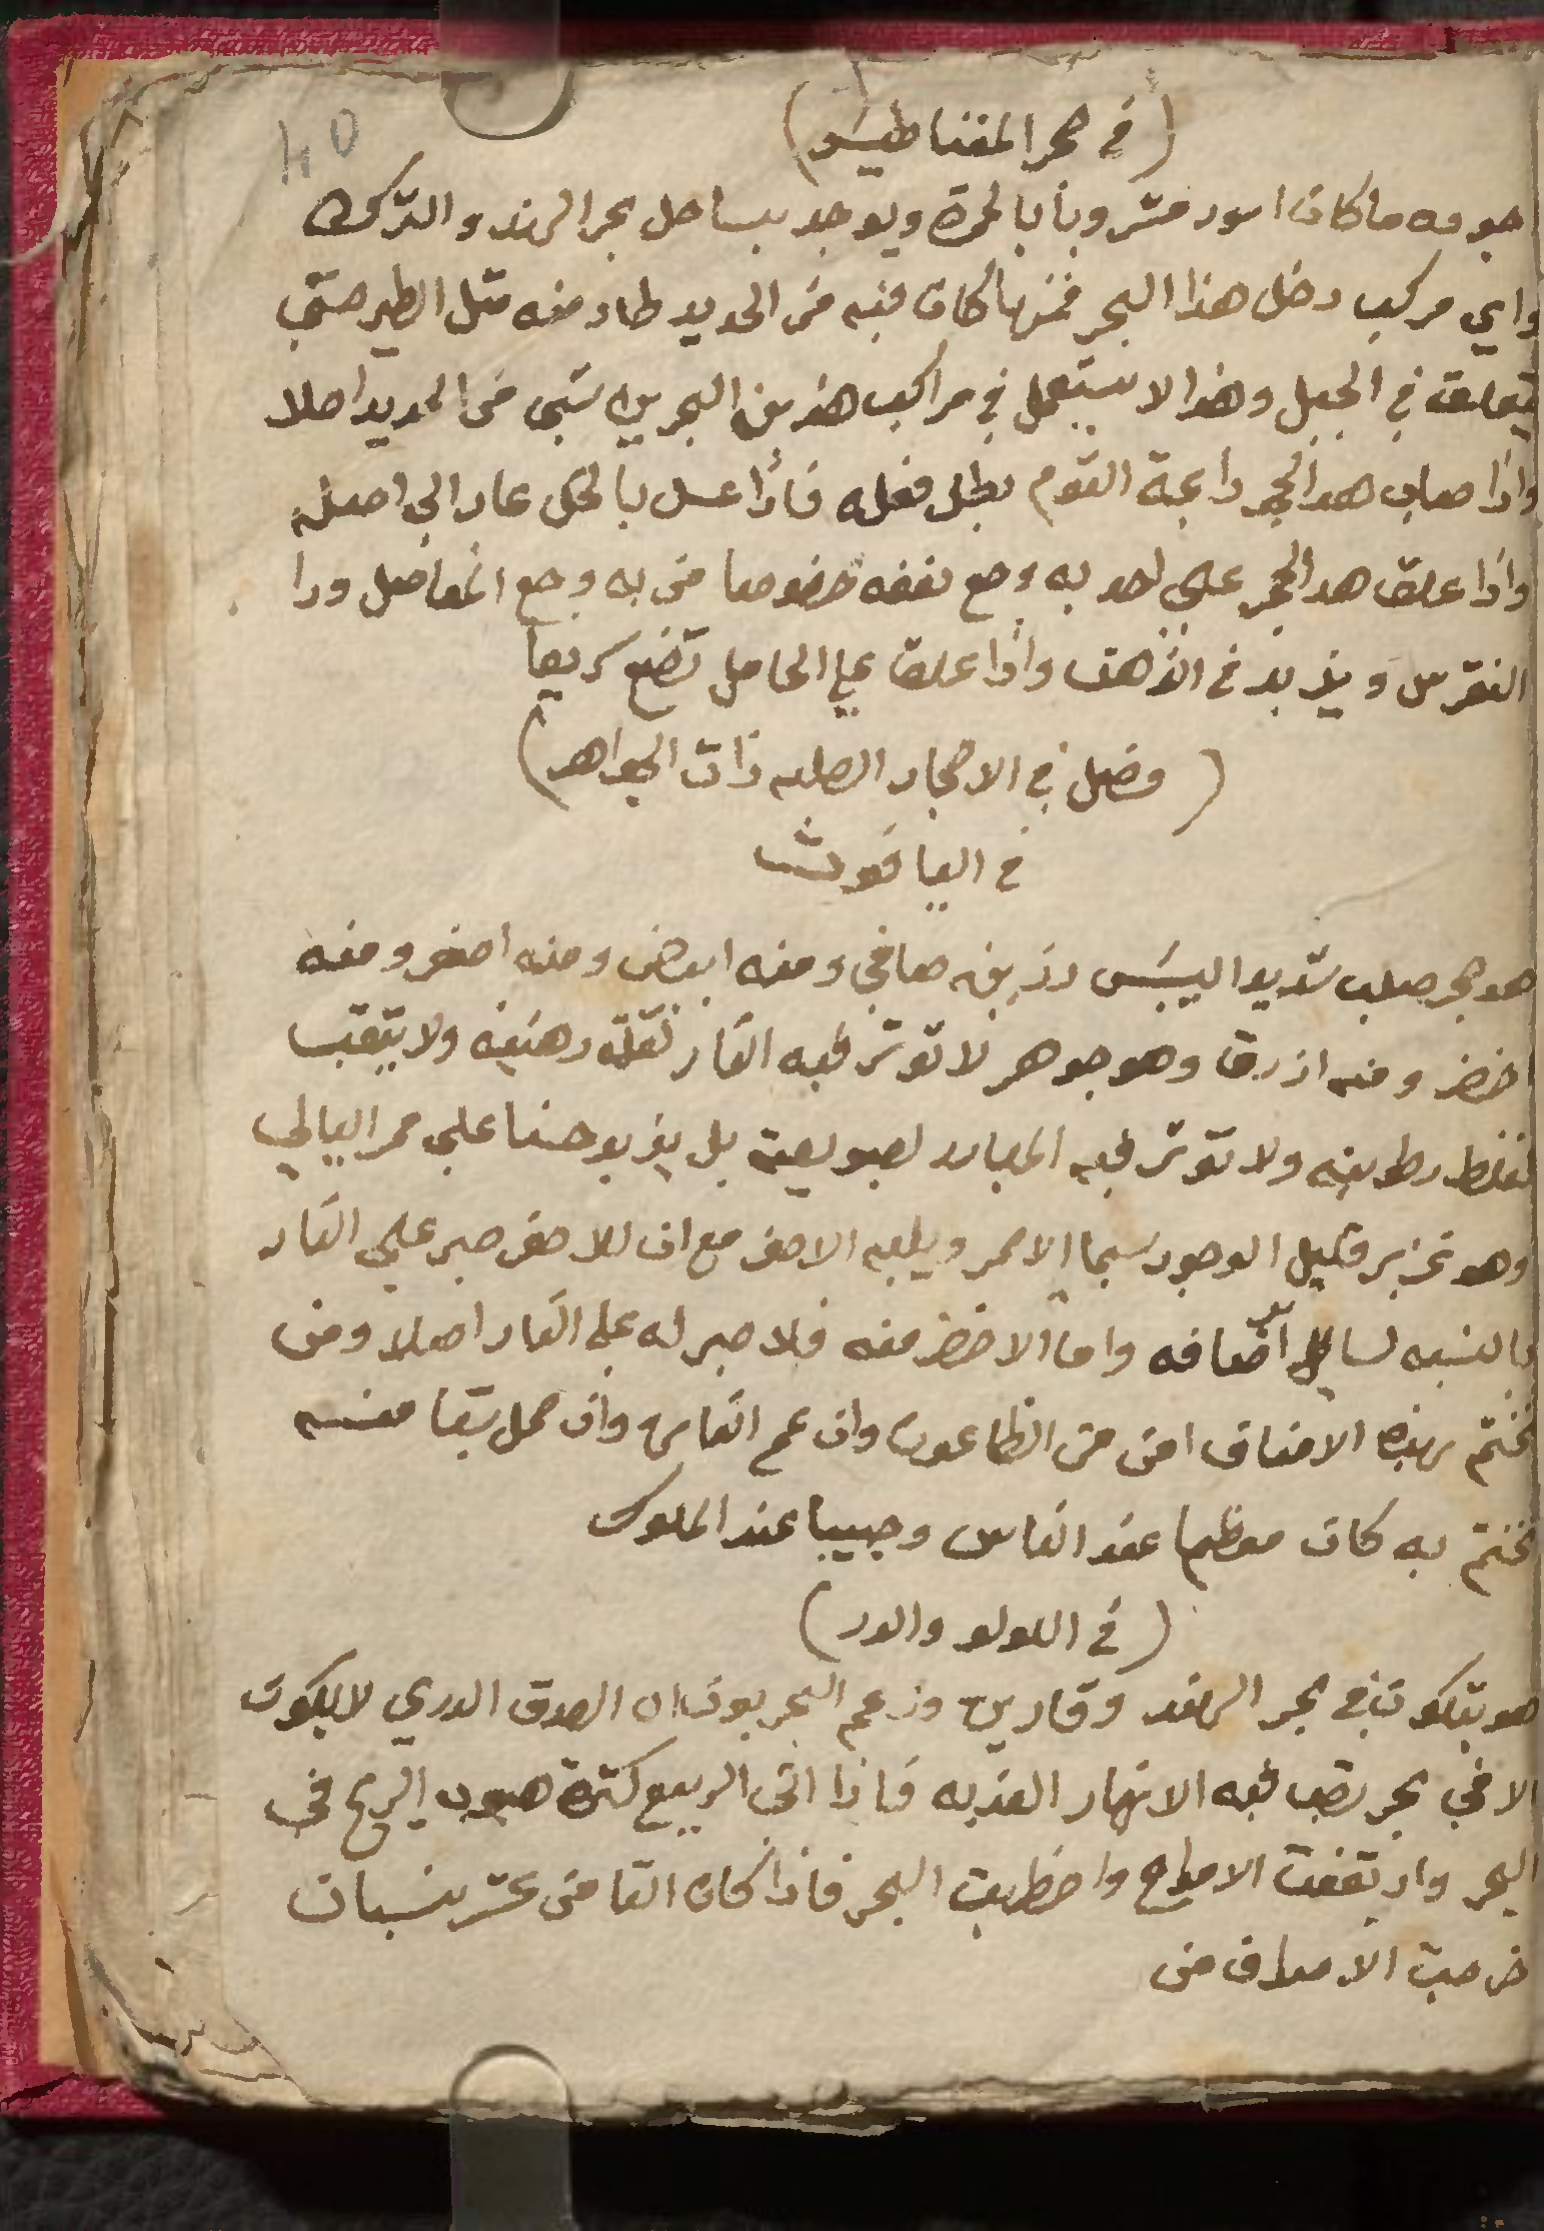 (في حجر المغناطيس)
اجوده ما كان اسود مشروبا بالحمرة ويوجد بساحل بحر الهند والترك
واي مركب دخل هذا البحر فمهما كان فيه من الحديد طار منه مثل الطير حتى
يتعلق في الجبل ولهذا لا يستعمل في مراكب هذين البحرين شي من الحديد اصلا
واذا صاب هذا الحجر رائحة الثوم بطل فعله فاذا غسل بالخل عاد الى اصله
واذا علق هذا الحجر على احد به وجع نفعه خصوصا من به وجع المفاصل ودا
النقرس ويزيد في الذهن واذا علق على الحامل تضع سريعا
(فصل في الاحجار الصلبه ذات الجواهر)
في الياقوت
هو حجر صلب شديد اليبس رزين صافي ومنه ابيض ومنه اصفر ومنه
اخضر ومنه ازرق وهو جوهر لا توثر فيه النار لقلة دهنيته ولا يثقب
لغلظ رطوبته ولا توثر فيه المبارد لصبوبته بل يزيد حسنا على ممر اليالي
وهو عزيز قليل الوجود سيما الاحمر ويليه الاصفر مع ان للاصفر صبر على النار
بالنسبه لساير اصنافه واما الاخضر منه فلا صبر له على النار اصلا ومن
تختم بهذه الاصناف امن من الطاعون وان عم الناس وان حمل شيا منه
تختم به كان معظما عند الناس وحبيبا عند الملوك
(في اللولو والدر)
هو يتكون في بحر الهند وفارس وزعم البحريون ان الصدف الدري لا يكون
الا في بحر تصب فيه الانهار العذبه فاذا اتى الربيع كثرة هبوب الريح في
البحر وارتفعت الامواج واضطربت البحر فاذا كان الثامن عشر نيسان
خرجت الاصداف من